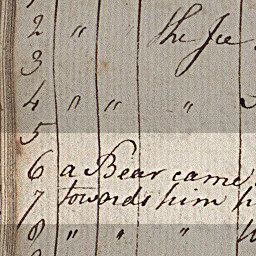 2 " the Ice
3
4 " " "
5
6 a Bear came
7 towards him h
8 " " "